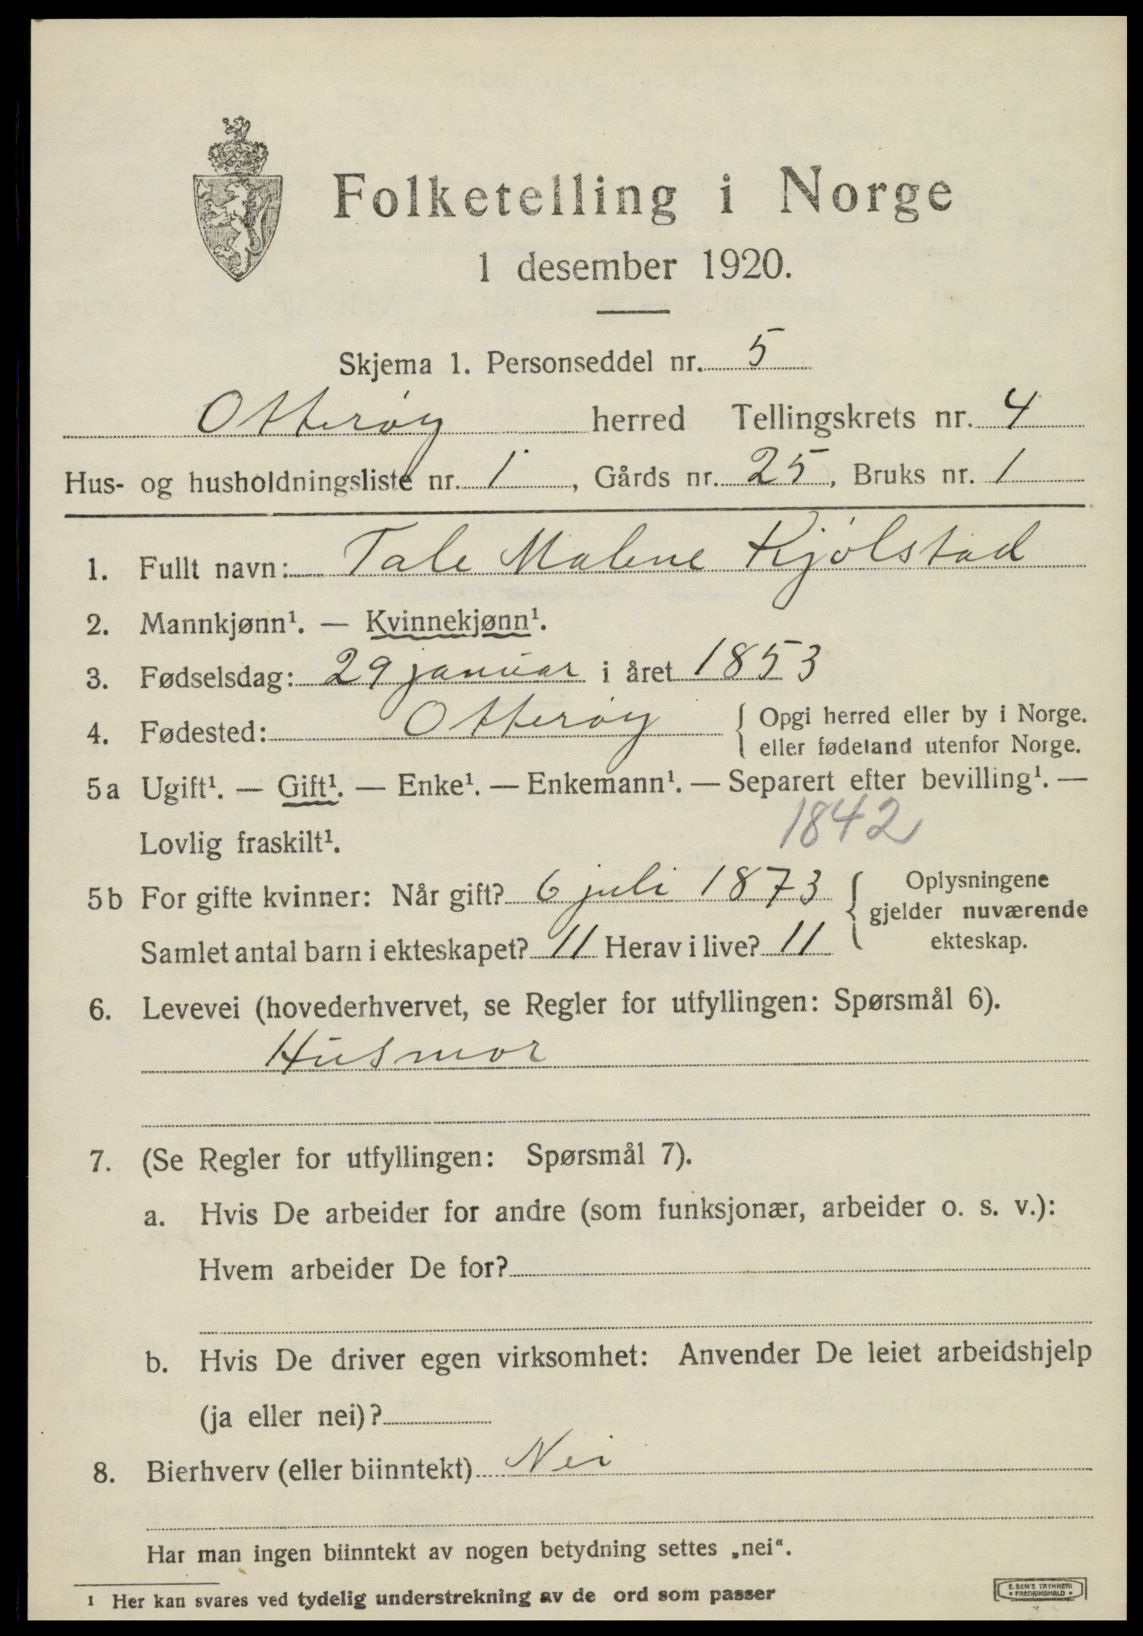 Folketelling i Norge
1 desember 1920.
Skjema 1. Personseddel nr. 5
Otterøy herred Tellingskrets nr. 4
Hus- og husholdningsliste nr. 1, Gårds nr. 25, Bruks nr. 1
1. Fullt navn: Tale Malene Kjølstad
2. Mannkjønn¹. — Kvinnekjønn¹.
3. Fødselsdag: 29 januar i året 1853
4. Fødested: Otterøy { Opgi herred eller by i Norge.
eller fødeland utenfor Norge.
5a Ugift¹. — Gift¹. — Enke¹. — Enkemann¹. — Separert efter bevilling¹. —
Lovlig fraskilt¹. 1842
5b For gifte kvinner: Når gift? 6 juli 1873 { Oplysningene
gjelder nuværende
Samlet antal barn i ekteskapet? 11 Herav i live? 11 ekteskap.
6. Levevei (hovederhvervet, se Regler for utfyllingen: Spørsmål 6).
Husmor
7. (Se Regler for utfyllingen: Spørsmål 7).
a. Hvis De arbeider for andre (som funksjonær, arbeider o. s. v.):
Hvem arbeider De for?
b. Hvis De driver egen virksomhet: Anvender De leiet arbeidshjelp
(ja eller nei)?
8. Bierhverv (eller biinntekt) Nei
Har man ingen biinntekt av nogen betydning settes „nei“.
¹ Her kan svares ved tydelig understrekning av de ord som passer
E. SEM'S TRYKKERI
* FREDRIKSHALD *